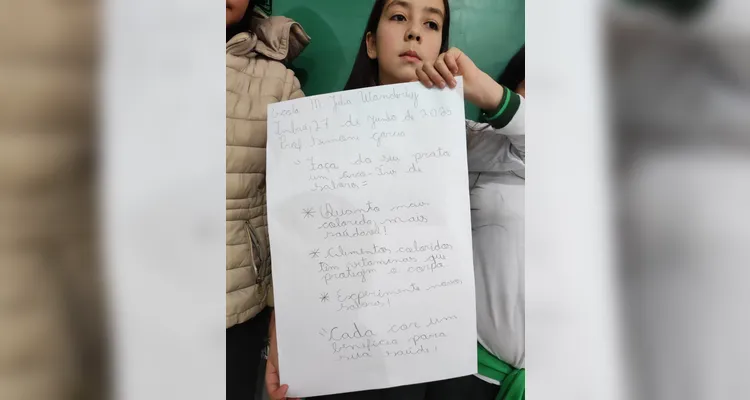 Escola M. Júlio
27 de junho de 2025
Prof
"Faça do seu prato
um arco-íris de
sabores"
* Quanto mais
colorido, mais
saudável!
* Alimentos coloridos
têm vitaminas que
protegem o corpo
* Experimente novos
sabores!
"Cada cor um
benefício para
sua saúde!